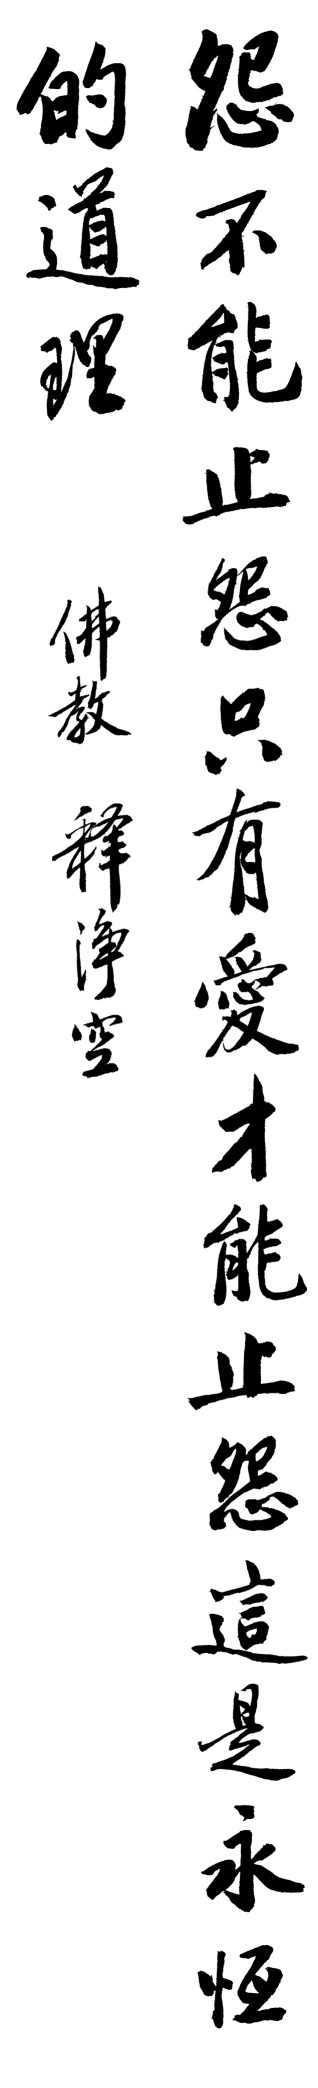 怨不能止怨只有愛才能止怨這是永恆
的道理
佛教 釋淨空